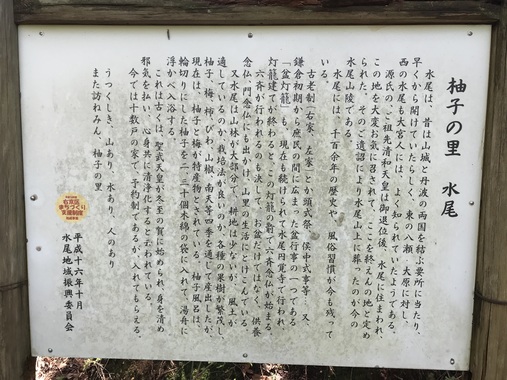 柚子の里 水尾
水尾は、昔は山城と丹波の両国を結ぶ要所に当たり、
早くから開けていたらしく、東の八瀬、大原に対し、
西の水尾も大宮人には、よく知られていたようである。
源氏の、ご祖先清和天皇は御退位後、水尾に住まわれ、
この地を大変お気に召されて、ここを終えんの地と定め
られた。そのご遺詔により水尾山上に葬ったのが今の
水尾山陵である。
水尾には、千百余年の歴史や、風俗習慣が今も残って
いる。
古老制(右家、左家)とか頭式祭、侯中式事等、又、
鎌倉初期から庶民の間に広まった盆行事のひとつである
「盆灯籠」も、現在も続けられて水尾円覚寺で行われ
灯籠建てが終わると、この灯籠の前で六斎念仏が始まる。
六斎が行われるのも決して、お盆だけではなく、供養
念仏、門念仏にも出かけ、山里の生活にとけこんでいる。
又水尾は山林が大部分で、耕地は少ないが、風土が
適しているのか栽培法が良いのか、各種の果樹が繁茂し、
柚子、梅、柿、びわ、山椒、南天等四季を通して産出したが、
現在は、柚子と梅が特産物とされている。柚子風呂は、
輪切りにした柚子を二、三十個木綿の袋に入れて湯舟に
浮かべ入浴する。
これは古くは、聖武天皇が冬至の賀に始められ、身を清め
邪気を払い、心身共に清浄化すると云われている。
今では十数戸の家で、予約制であるが、入れてもらえる。
うつくしき、山あり、水あり、人のあり
また訪ねみん、柚子の里
平成十六年十月
水尾地域振興委員会
右京区
まちづくり
支援制度